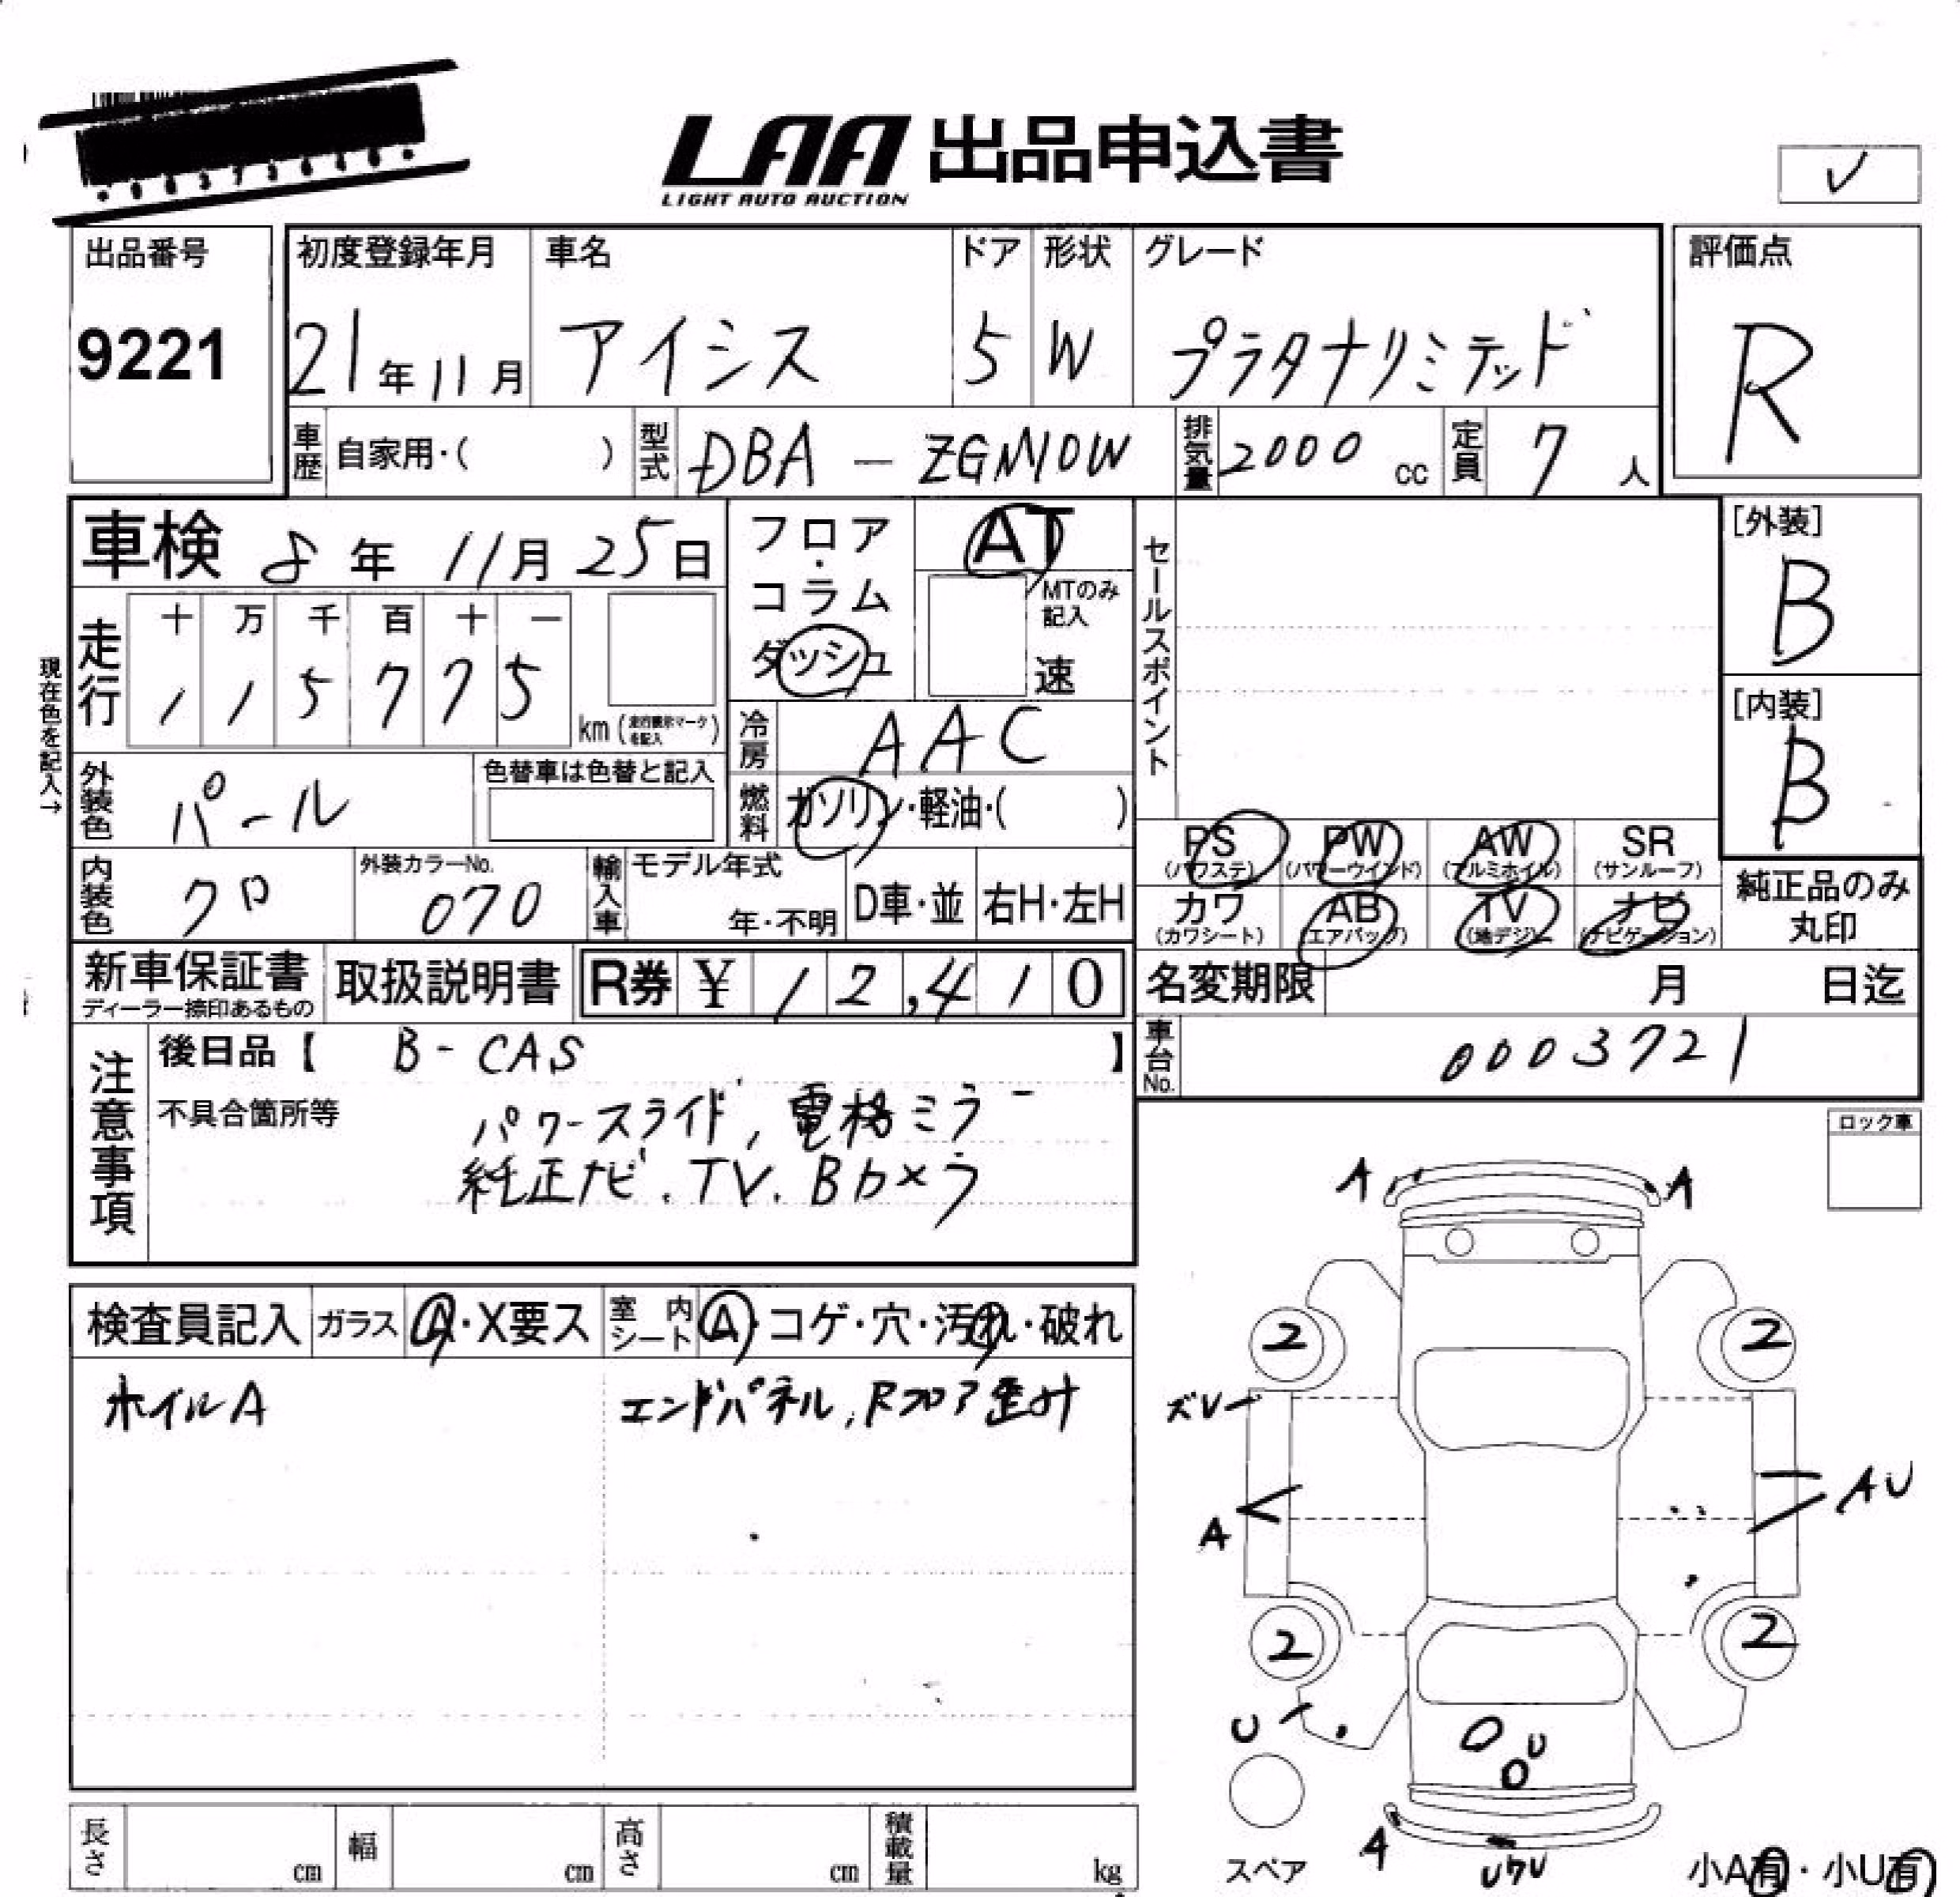 LAA 出品申込書
LIGHT AUTO AUCTION
✓
出品番号
9221
初度登録年月
21年11月
車名
アイシス
ドア
5
形状
W
グレード
プラタナリミテッド
評価点
R
車歴 自家用・( )
型式 DBA - ZGM10W
排気量 2000 cc
定員 7 人
車検 8年 11月 25日
フロア・コラム
ダッシュ
AT
MTのみ記入
速
セールスポイント
[外装]
B
[内装]
B
現在色を記入→
走行
十 万 千 百 十 一
1 1 5 7 7 5
km (走行表示マークを記入)
冷房 AAC
外装色 パール
色替車は色替と記入
燃料 ガソリン・軽油・( )
PS (パワステ)
PW (パワーウインド)
AW (アルミホイル)
SR (サンルーフ)
カワ (カワシート)
AB (エアバッグ)
TV (地デジ)
ナビ (ナビゲーション)
純正品のみ丸印
内装色 クロ
外装カラーNo. 070
輸入車
モデル年式
年・不明
D車・並
右H・左H
新車保証書
ディーラー捺印あるもの
取扱説明書
R券 ¥ 12,410
名変期限 月 日迄
車台No. 0003721
注意事項
後日品【 B-CAS 】
不具合箇所等
パワースライド, 電格ミラー
純正ナビ. TV. Bカメラ
ロック車
検査員記入
ガラス A・X要ス
室内シート A・コゲ・穴・汚れ・破れ
ホイルA
エンドパネル, Rフロア歪み
A
A
2
2
ズレ
AU
A
2
2
U
U
A
UクU
スペア
長さ cm
幅 cm
高さ cm
積載量 kg
小A有・小U有